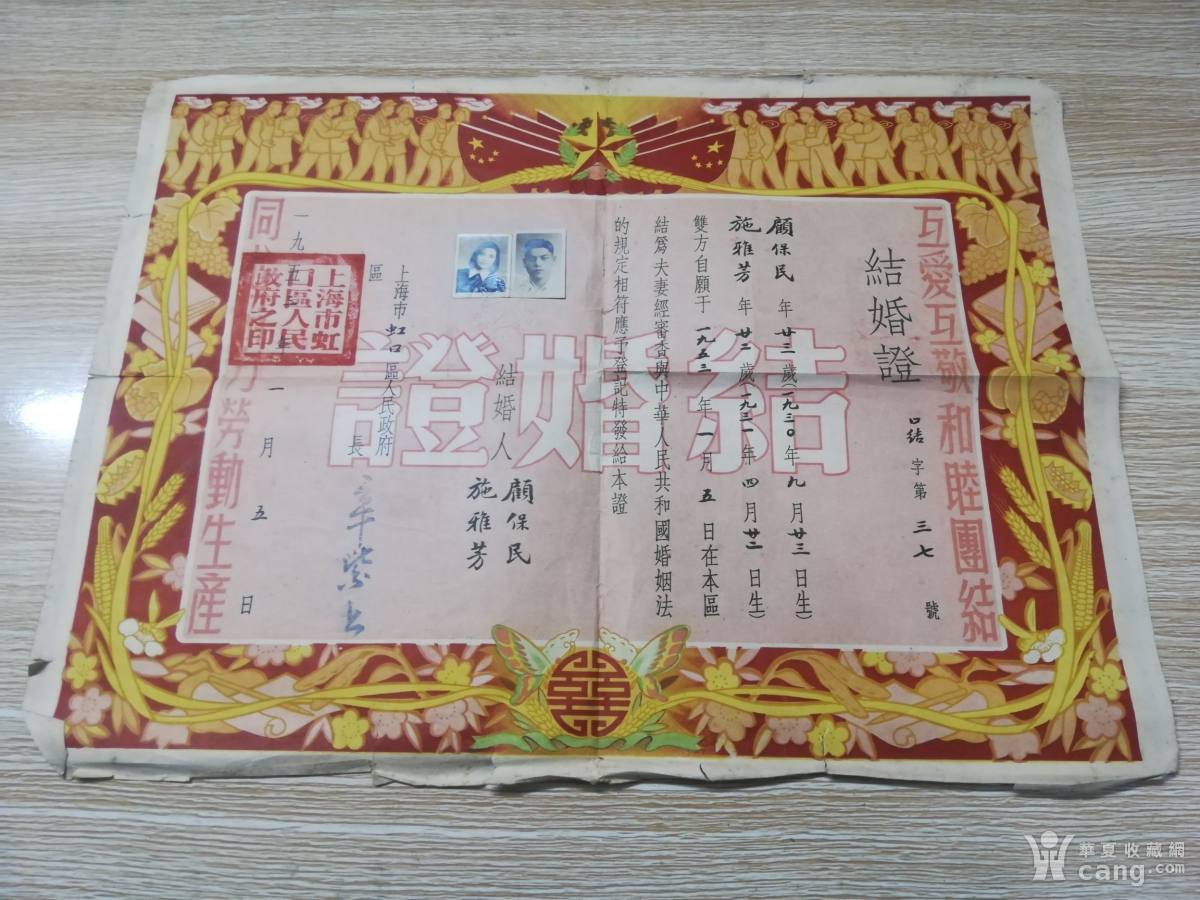 互愛互敬和睦團結
結婚證
口結字第三七號
顧保民 年廿三歲(一九三〇年九月廿三日生)
施雅芳 年廿二歲(一九三一年四月廿二日生)
雙方自願于一九五三年一月五日在本區
結爲夫妻經審查與中華人民共和國婚姻法
的規定相符應予登記特發給本證
結婚人 顧保民
施雅芳
上海市虹口區人民政府
區長
一九五 年一月五日
上海市虹
口區人民
政府之印
同 力勞動生産
結婚證
華夏收藏網
cang.com